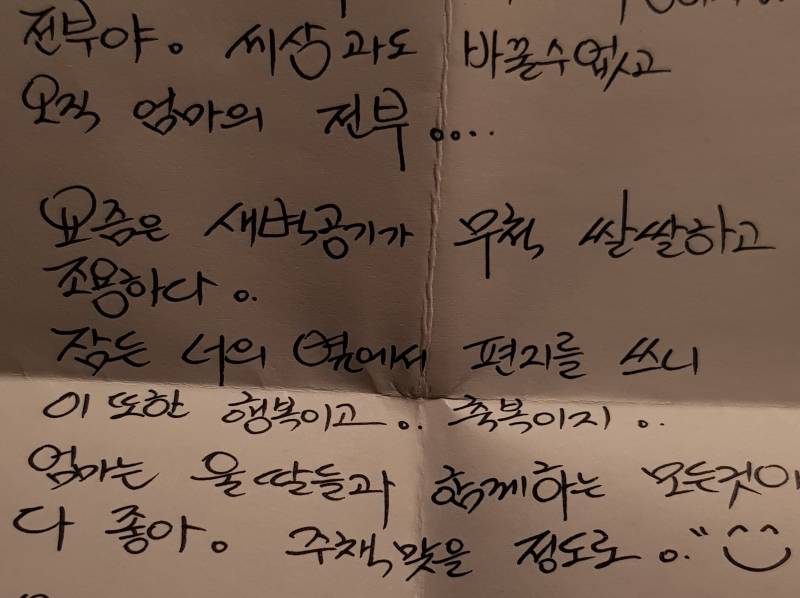 전부야. 세상과도 바꿀수없고
오직 엄마의 전부....
요즘은 새벽공기가 무척 쌀쌀하고
조용하다..
잠든 너의 옆에서 편지를 쓰니
이 또한 행복이고.. 축복이지..
엄마는 울딸들과 함께하는 모든것이
다 좋아. 주책맞을 정도로..